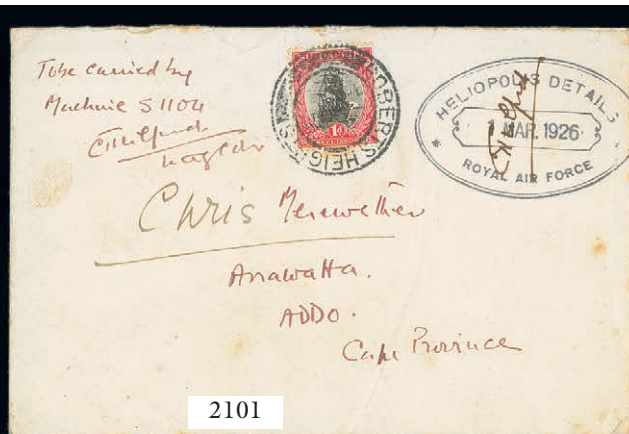 To be carried by
Machine S1104
ROBERTS HEIGHTS
1D
HELIOPOLIS DETAILS
1 MAR. 1926
* ROYAL AIR FORCE
Chris Merewether
Anawatta.
ADDO.
Cape Province
2101